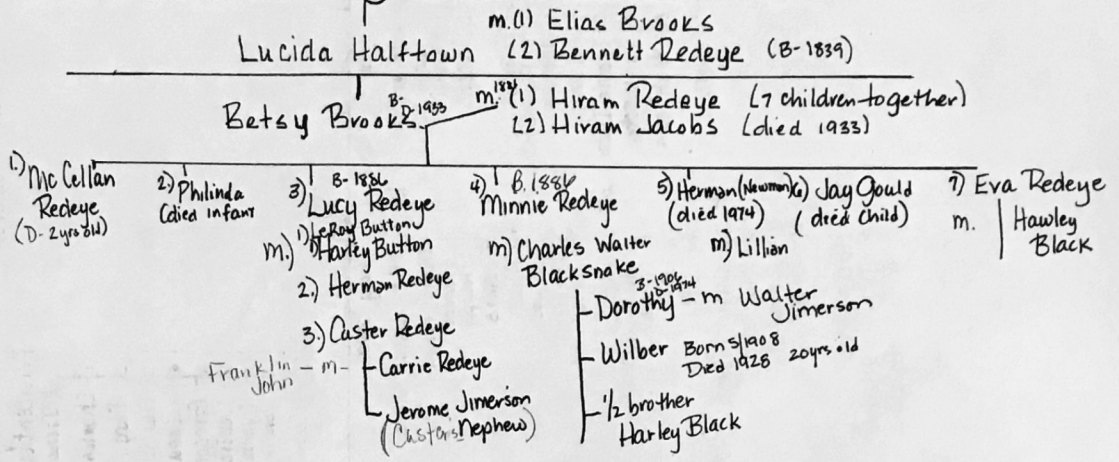 m.(1) Elias Brooks
Lucida Halftown (2) Bennett Redeye (B-1839)
Betsy Brooks B- D-1933 m. (1) Hiram Redeye (7 children together)
(2) Hiram Jacobs (died 1933)
1) Mc Cellan
Redeye
(D- 2yrs old)
2) Philinda
(died infant
3) B-1886
Lucy Redeye
m.) 1) LeRoy Button
Harley Button
2.) Herman Redeye
3.) Caster Redeye
Franklin John - m - Carrie Redeye
Jerome Jimerson
(Casters Nephew)
4) B.1886
Minnie Redeye
m) Charles Walter
Blacksnake
B-1906
D-1974
Dorothy - m Walter
Jimerson
Wilber Born 5/1908
Died 1928 20yrs old
1/2 brother
Harley Black
5) Herman (Newman)
(died 1974)
m) Lillian
6) Jay Gould
(died child)
7) Eva Redeye
m. Hawley
Black